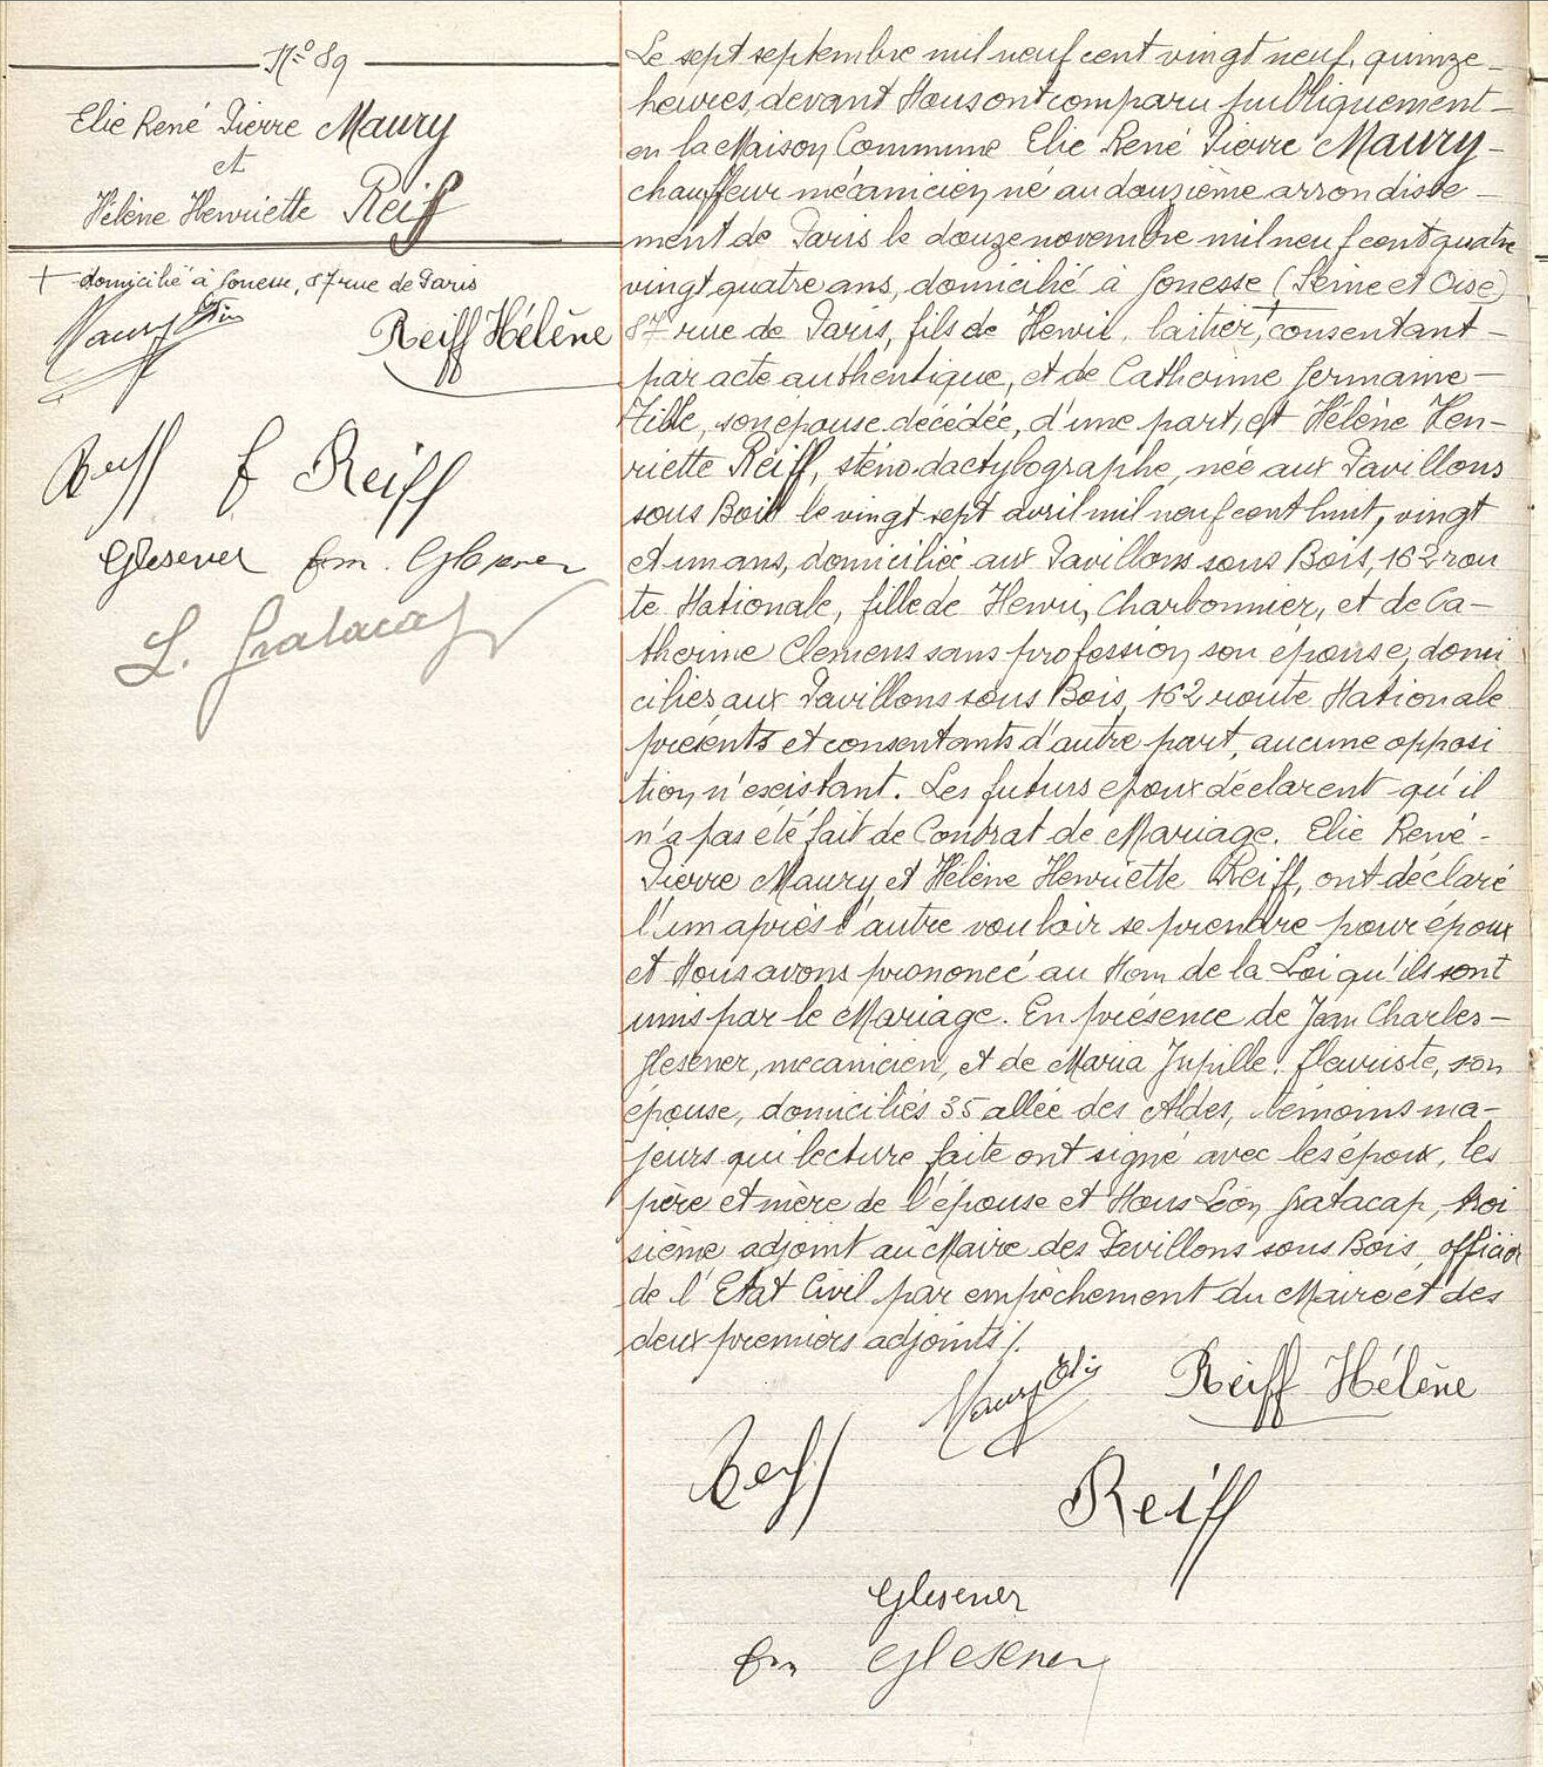 N° 89
Elie René Pierre Maury
et
Hélène Henriette Reiff
+ domicilié à Gonesse, 87 rue de Paris
Maury Elie
Reiff Hélène
Reiff f Reiff
Glesener fm. Glesener
L. Gratacap
Le sept septembre mil neuf cent vingt neuf, quinze
heures, devant Nous ont comparu publiquement
en la Maison Commune Elie René Pierre Maury
chauffeur mécanicien, né au douzième arrondisse
ment de Paris le douze novembre mil neuf cent quatre
vingt quatre ans, domicilié à Gonesse (Seine et Oise)
87 rue de Paris, fils de Henri, laitier, + consentant
par acte authentique, et de Catherine Germaine
son épouse décédée, d'une part, et Hélène Hen-
riette Reiff, sténo-dactylographe, née aux Pavillons
sous Bois le vingt sept avril mil neuf cent huit, vingt
et un ans, domiciliée aux Pavillons sous Bois, 162 rou
te Nationale, fille de Henri, Charbonnier, et de Ca-
therine Clemens sans profession, son épouse, domi
ciliés aux Pavillons sous Bois, 162 route Nationale
présents et consentants d'autre part, aucune opposi
tion n'existant. Les futurs époux déclarent qu'il
n'a pas été fait de Contrat de Mariage. Elie René-
Pierre Maury et Hélène Henriette Reiff, ont déclaré
l'un après l'autre vouloir se prendre pour époux
et Nous avons prononcé au Nom de la Loi qu'ils sont
unis par le Mariage. En présence de Jean Charles
Glesener, mécanicien, et de Maria Jupille, fleuriste, son
épouse, domiciliés 35 allée des Aldes, témoins ma-
jeurs qui lecture faite ont signé avec les époux, les
père et mère de l'épouse et Nous Léon Gratacap, troi
sième adjoint au Maire des Pavillons sous Bois, officier
de l'Etat Civil par empêchement du Maire et des
deux premiers adjoints ./.
Maury Elie
Reiff Hélène
Reiff
Reiff
Glesener
fm Glesener